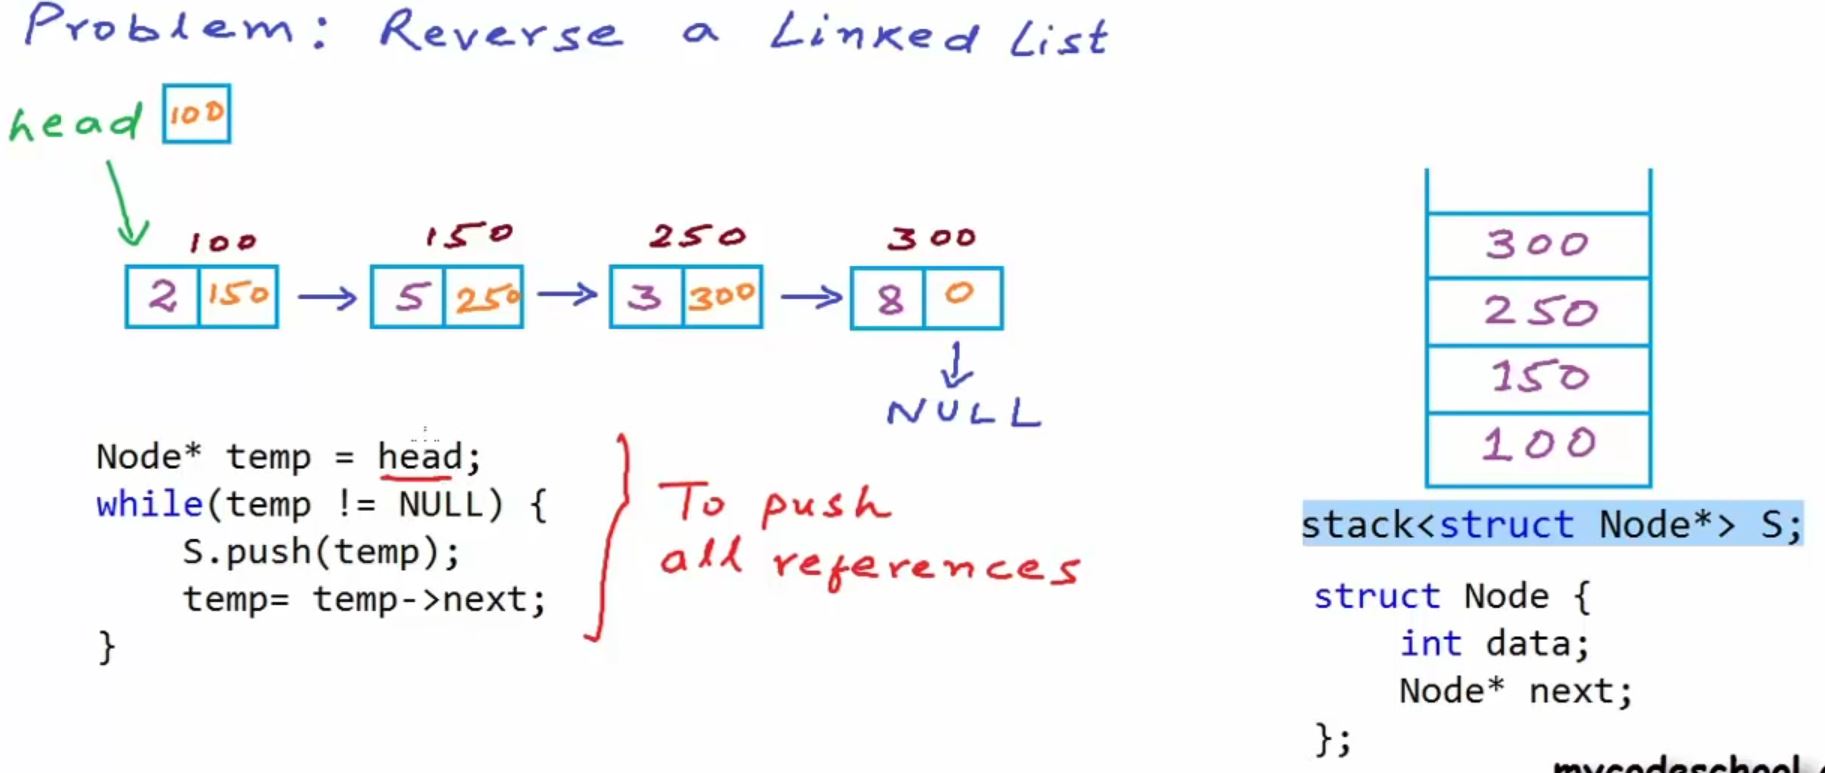 Problem: Reverse a Linked List
head 100
100 150 250 300
2 150 5 250 3 300 8 0
NULL
Node* temp = head;
while(temp != NULL) {
S.push(temp);
temp= temp->next;
}
To push
all references
300
250
150
100
stack<struct Node*> S;
struct Node {
int data;
Node* next;
};